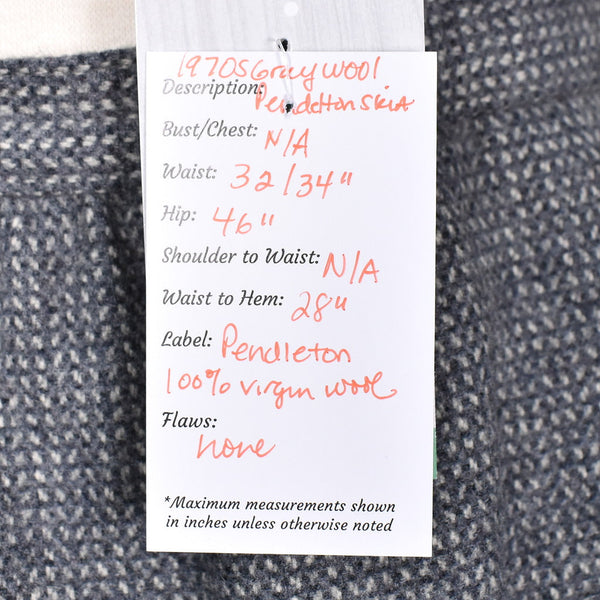 1970s Gray Wool
Description: Pendelton Skirt
Bust/Chest: N/A
Waist: 32/34"
Hip: 46"
Shoulder to Waist: N/A
Waist to Hem: 28"
Label: Pendleton
100% virgin wool
Flaws:
none
*Maximum measurements shown
in inches unless otherwise noted